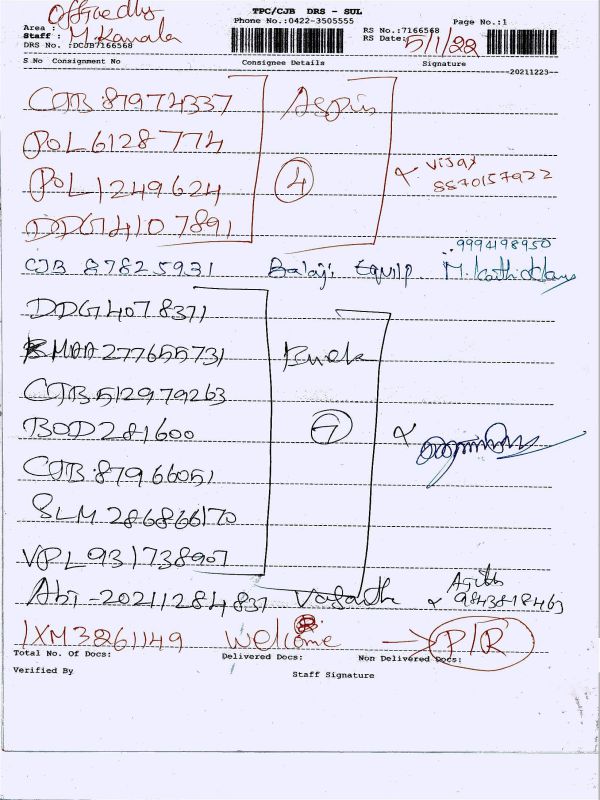 TPC/CJB DRS - SUL
Phone No.:0422-3505555 Page No.:1
Area :
Staff : M. Kamala
RS No.:7166568
RS Date: 5/1/22
DRS No. :DCJB7166568
S No Consignment No Consignee Details Signature
20211223
CJB 87974337
POL 6128774
POL 1249624 4 Vijay
8870157922
DDG 4107891
9994198950
CJB 87825931 Balaji Equip
DDG 4078371
MAA 277655731
CJB 512979263
BOD 281600 7
CJB 87966051
SLM 286866170
VPL 931738907
Ajith
9843818463
IXM 3861149 Welcome → P/R
Total No. Of Docs: Delivered Docs: Non Delivered Docs:
Verified By Staff Signature